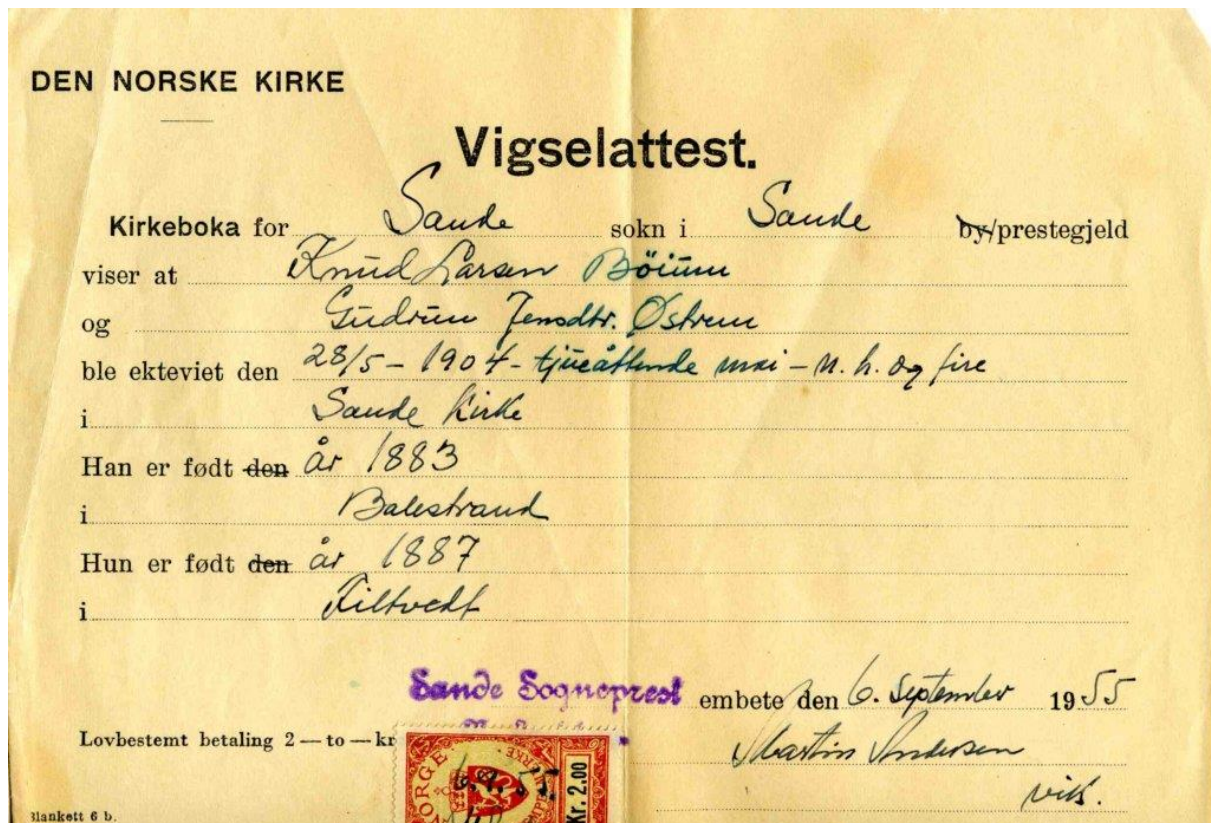 DEN NORSKE KIRKE
Vigselattest.
Kirkeboka for Sande sokn i Sande by/prestegjeld
viser at Knud Larsen Böium
og Gudrun Jensdtr. Østrem
ble ekteviet den 28/5 - 1904 - tjueåttende mai - n. h. og fire
i Sande kirke
Han er født den år 1883
i Balestrand
Hun er født den år 1887
i Filtvedt
Sande Sogneprest embete den 6. september 1955
Lovbestemt betaling 2 — to — kr
Martin Andersen
vik.
NORGE
6.9.55
Kr. 2.00
Blankett 6 b.